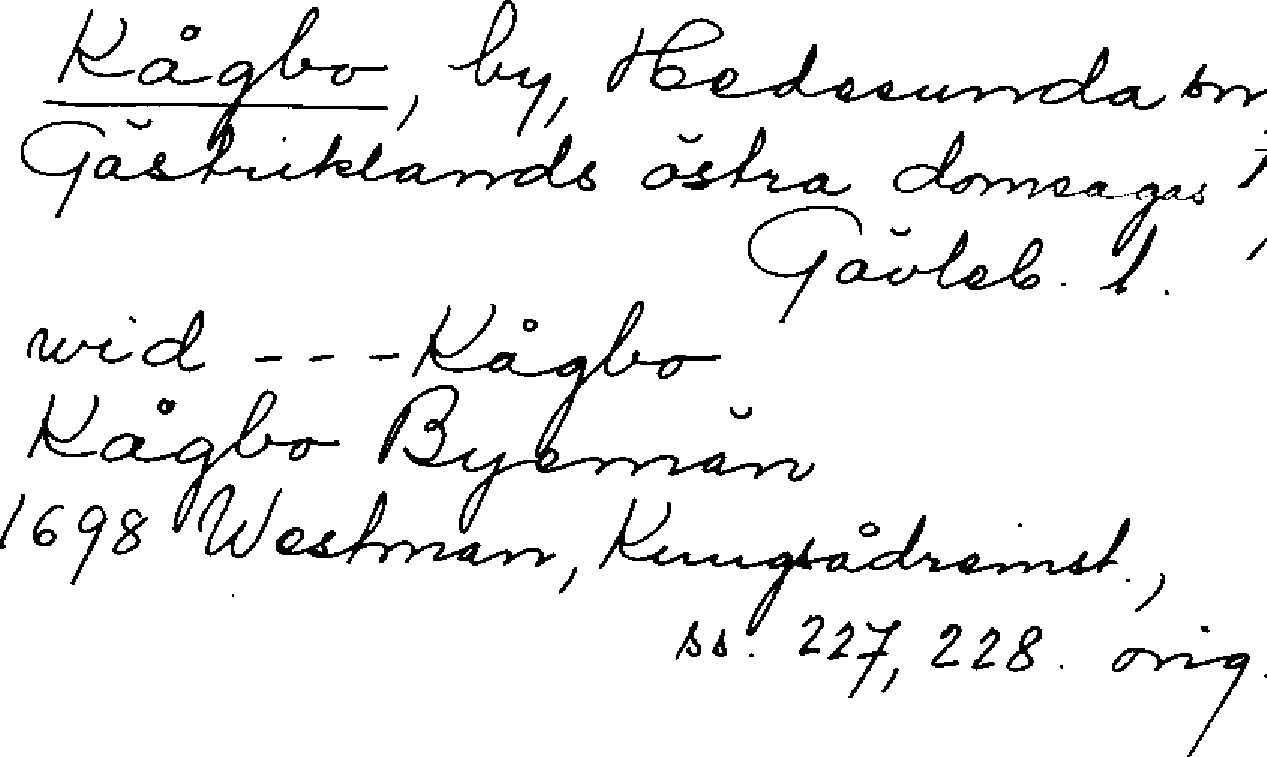 Kågbo, by, Hedesunda sn
Gästriklands östra domsagas
Gävleb. l.
wid - - - Kågbo
Kågbo Byemän
1698 Westman, Kungsådremst.,
ss. 227, 228. orig.